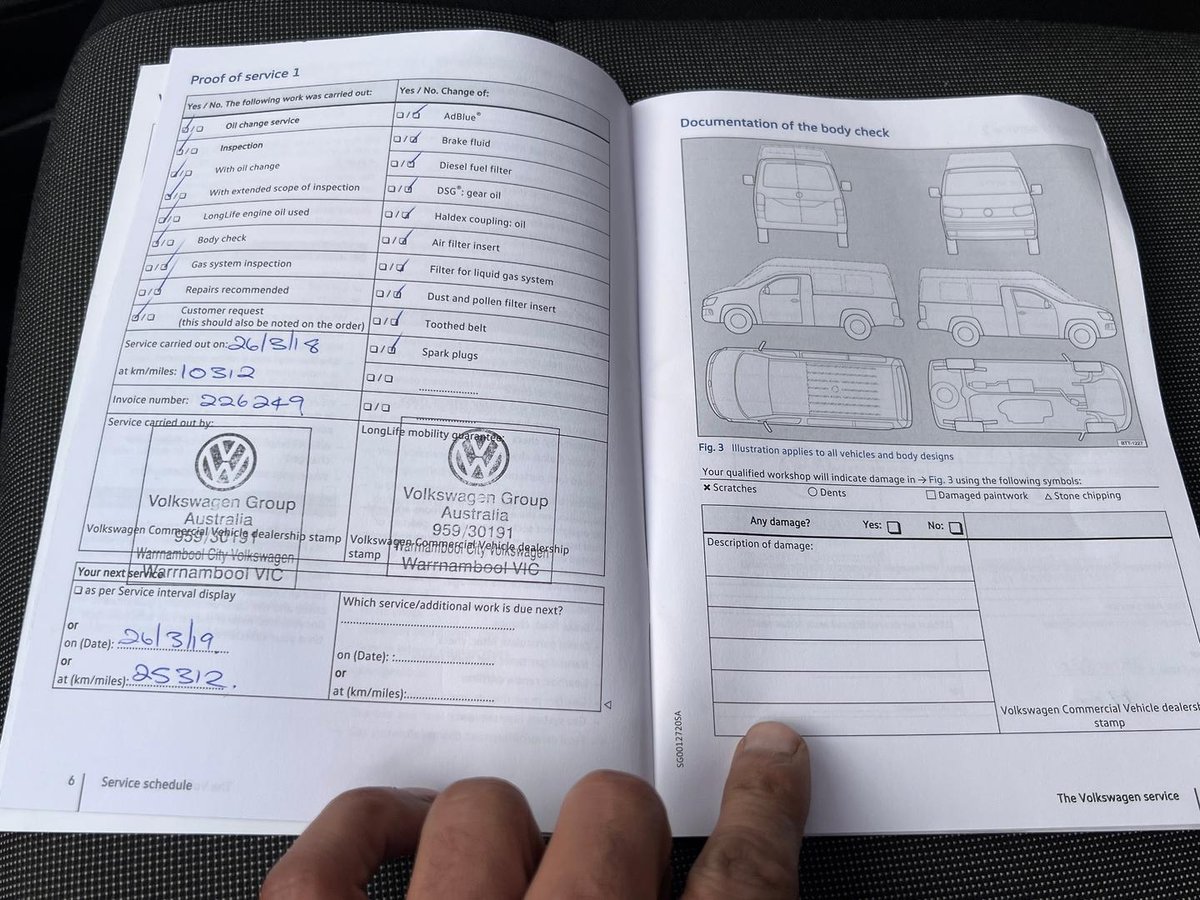 Proof of service 1
Yes / No. The following work was carried out:
Oil change service
Inspection
With oil change
With extended scope of inspection
LongLife engine oil used
Body check
Gas system inspection
Repairs recommended
Customer request
(this should also be noted on the order)
Service carried out on: 26/3/18
at km/miles: 10312
Invoice number: 226249
Yes / No. Change of:
AdBlue®
Brake fluid
Diesel fuel filter
DSG®: gear oil
Haldex coupling: oil
Air filter insert
Filter for liquid gas system
Dust and pollen filter insert
Toothed belt
Spark plugs
Service carried out by:
Volkswagen Group
Australia
959/30191
Volkswagen Commercial Vehicle dealership stamp
Warrnambool City Volkswagen
Warrnambool VIC
LongLife mobility guarantee:
Volkswagen Group
Australia
959/30191
Volkswagen Commercial Vehicle dealership
stamp
Warrnambool City Volkswagen
Warrnambool VIC
Your next service
as per Service interval display
or
on (Date): 26/3/19
or
at (km/miles): 25312.
Which service/additional work is due next?
on (Date): :
or
at (km/miles):
6 Service schedule
Documentation of the body check
BTT-1227
Fig. 3 Illustration applies to all vehicles and body designs
Your qualified workshop will indicate damage in → Fig. 3 using the following symbols:
× Scratches ○ Dents □ Damaged paintwork △ Stone chipping
Any damage? Yes: No:
Description of damage:
Volkswagen Commercial Vehicle dealersh
stamp
SG0012720SA
The Volkswagen service